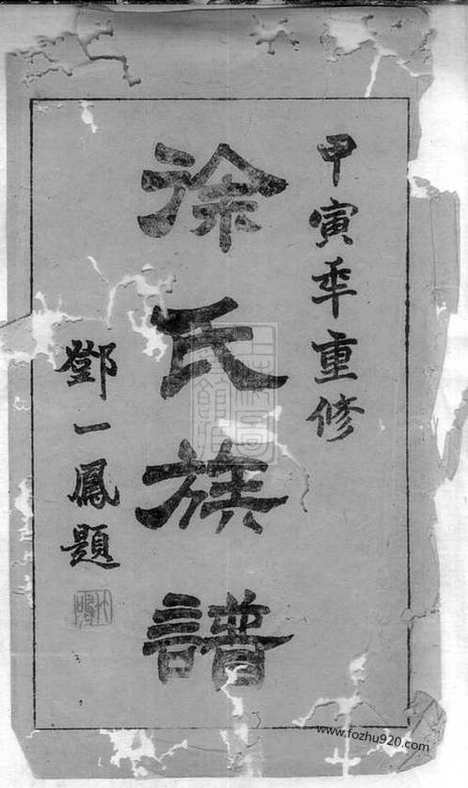 甲寅年重修
徐氏族譜
鄧一鳳題
www.fozhu920.com